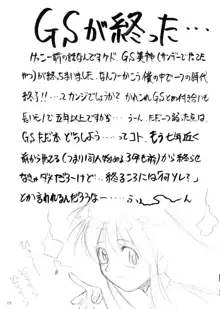 GSが終った…
けっこー前の話なんですケド、GS美神(サンデーでたてた
やつ)が終っちまいました。なんつーかこう僕の中で一つの時代
終了!!…ってカンジでしょうか?かれこれGSとの付き合いも
長いもんで五年以上ですか… うーん、ただ一つ弱った点は、
GSただ本 どうしよう…ってコト、もう七年近く
前から (つまり同人始める3年も前)から終らせ
なきゃダメだろーけど…終るころには「何ソレ?」
とか言われるんだろうなー…… ふぅ〜ん